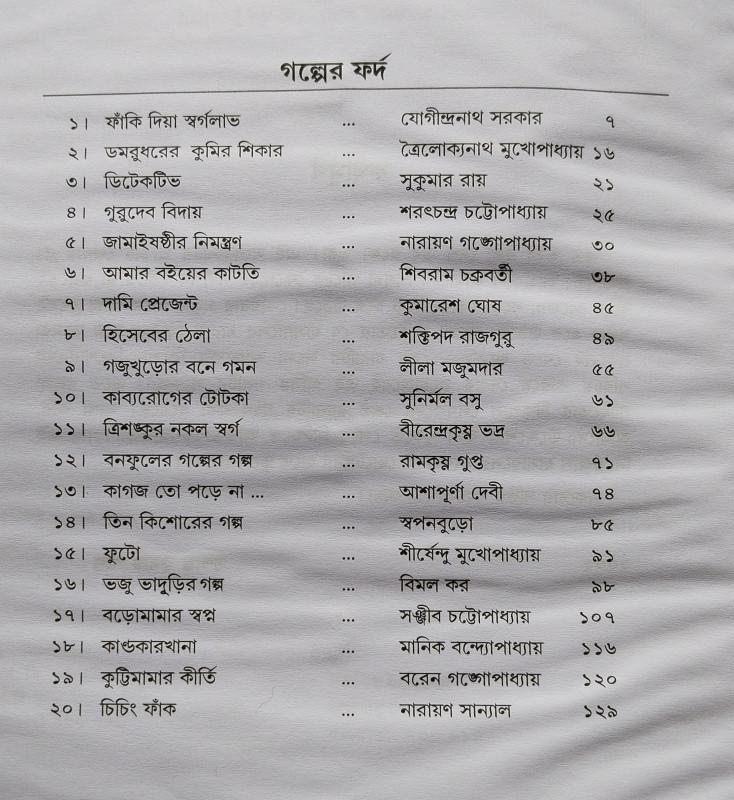 গল্পের ফর্দ
১। ফাঁকি দিয়া স্বর্গলাভ ... যোগীন্দ্রনাথ সরকার ৭
২। ডমরুধরের কুমির শিকার ... ত্রৈলোক্যনাথ মুখোপাধ্যায় ১৬
৩। ডিটেকটিভ ... সুকুমার রায় ২১
৪। গুরুদেব বিদায় ... শরৎচন্দ্র চট্টোপাধ্যায় ২৫
৫। জামাইষষ্ঠীর নিমন্ত্রণ ... নারায়ণ গঙ্গোপাধ্যায় ৩০
৬। আমার বইয়ের কাটতি ... শিবরাম চক্রবর্তী ৩৮
৭। দামি প্রেজেন্ট ... কুমারেশ ঘোষ ৪৫
৮। হিসেবের ঠেলা ... শক্তিপদ রাজগুরু ৪৯
৯। গজুখুড়োর বনে গমন ... লীলা মজুমদার ৫৫
১০। কাব্যরোগের টোটকা ... সুনির্মল বসু ৬১
১১। ত্রিশঙ্কুর নকল স্বর্গ ... বীরেন্দ্রকৃষ্ণ ভদ্র ৬৬
১২। বনফুলের গল্পের গল্প ... রামকৃষ্ণ গুপ্ত ৭১
১৩। কাগজ তো পড়ে না ... ... আশাপূর্ণা দেবী ৭৪
১৪। তিন কিশোরের গল্প ... স্বপনবুড়ো ৮৫
১৫। ফুটো ... শীর্ষেন্দু মুখোপাধ্যায় ৯১
১৬। ভজু ভাদুড়ির গল্প ... বিমল কর ৯৮
১৭। বড়োমামার স্বপ্ন ... সঞ্জীব চট্টোপাধ্যায় ১০৭
১৮। কাণ্ডকারখানা ... মানিক বন্দ্যোপাধ্যায় ১১৬
১৯। কুট্টিমামার কীর্তি ... বরেন গঙ্গোপাধ্যায় ১২০
২০। চিচিং ফাঁক ... নারায়ণ সান্যাল ১২৯